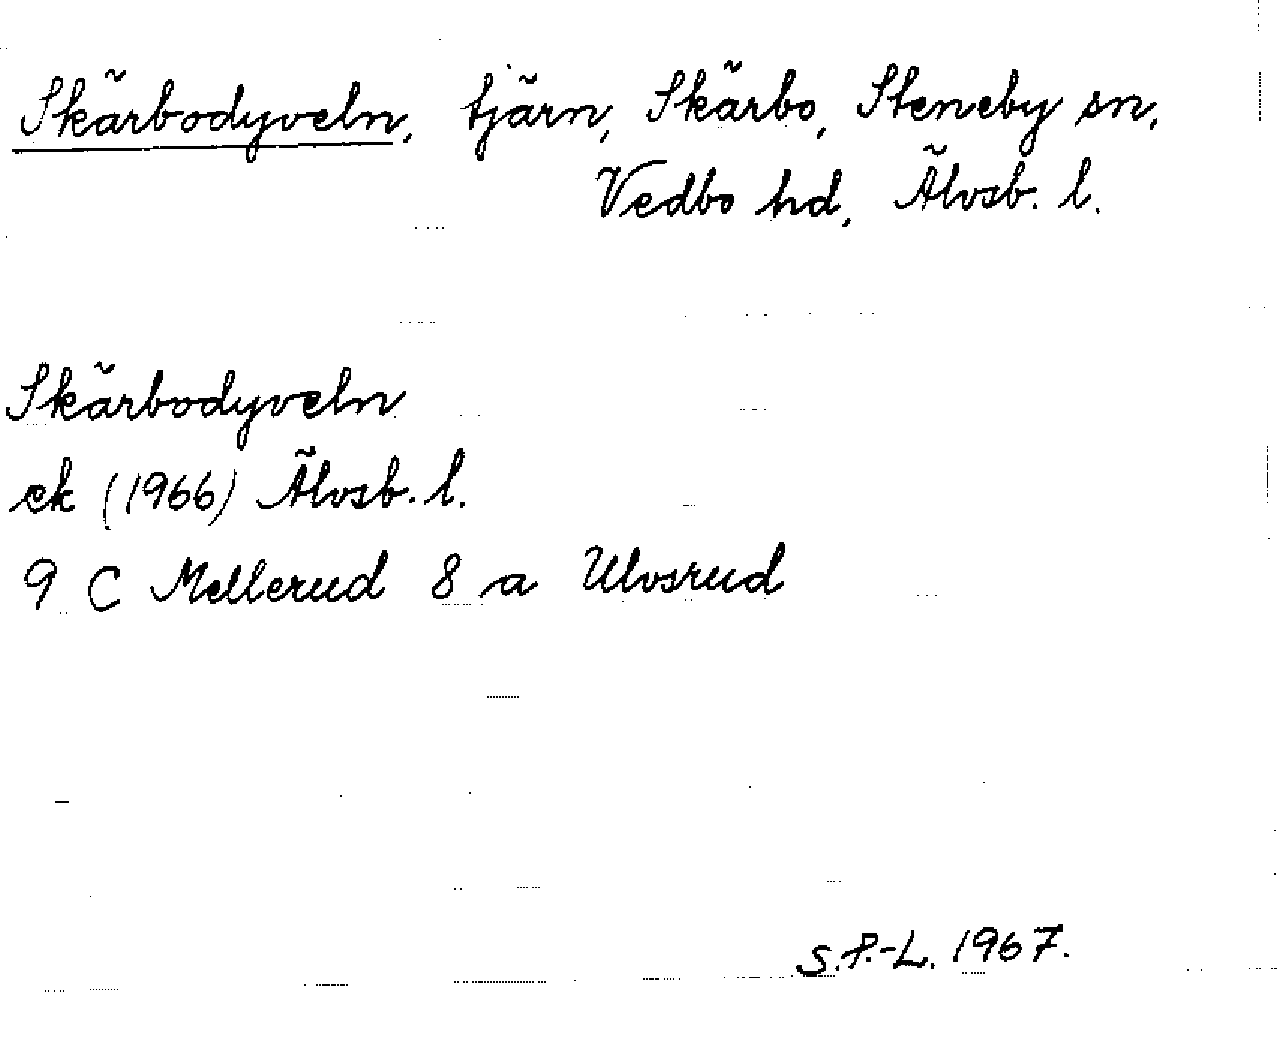 Skärbodyveln, tjärn, Skärbo, Steneby sn,
Vedbo hd, Älvsb. l.
Skärbodyveln
ek (1966) Älvsb. l.
9 C Mellerud 8 a Ulvsrud
S.P.-L. 1967.